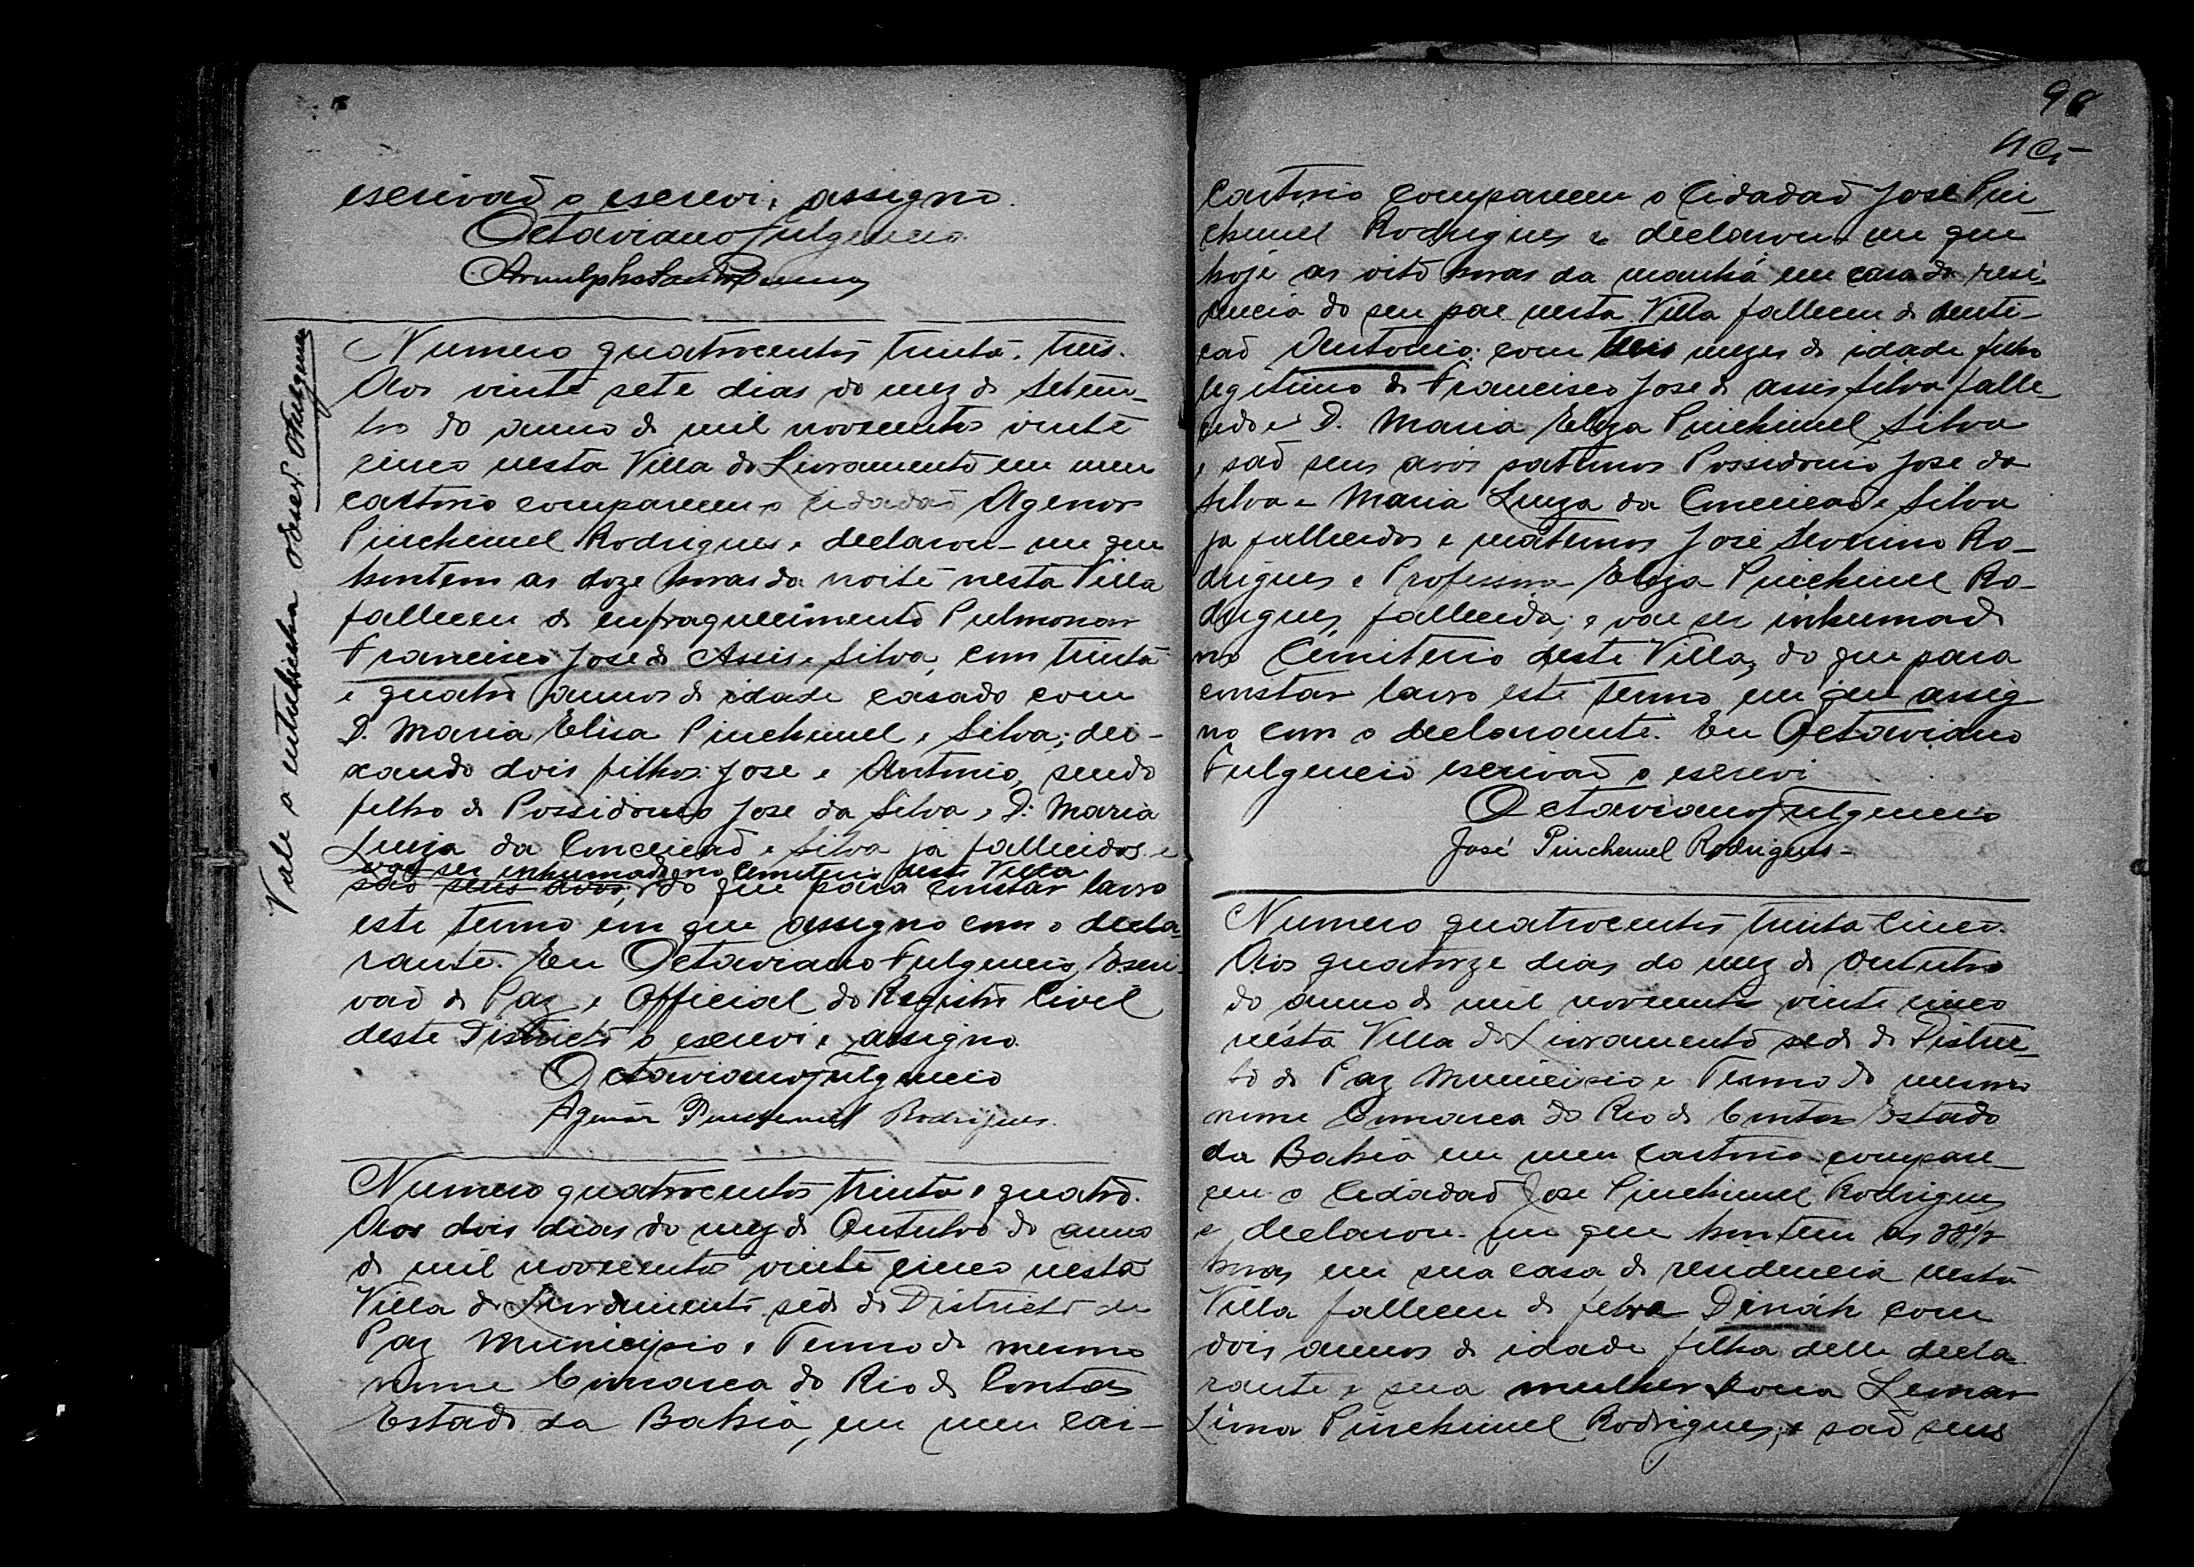 escrivaõ o escrevi e assigno.
Octaviano Fulgencio
Vale a entrelinha
Numero quatrocentos trinta e tres.
Aos vinte sete dias do mez de Setem-
bro do anno de mil novecentos vinte
cinco nesta Villa do Livramento em meu
cartorio compareceu o cidadaõ Agenor
Pinchemel Rodrigues e declarou-me que
hontem as doze horas da noite nesta Villa
falleceu de enfraquecimento Pulmonar
Francisco José de Assis e Silva, com trinta
e quatro annos de idade casado com
D. Maria Elisa Pinchemel e Silva; dei-
xando dois filhos: José e Antonio, sendo
filho de Possidonio José da Silva e D. Maria
Luiza da Conceicaõ e Silva já fallecidos e
vae ser inhumado no Cemiterio desta Villa
saõ seus avós, do que para constar lavro
este termo em que assigno com o decla-
rante. Eu Octaviano Fulgencio, Escri-
vaõ de Paz e Official do Registro Civil
deste Districto o escrevi e assigno.
Octaviano Fulgencio
Agenor Pinchemel Rodrigues.
Numero quatrocentos trinta e quatro.
Aos dois dias do mez de Outubro do anno
de mil novecentos vinte cinco nesta
Villa do Livramento séde do Districto de
Paz Municipio e Termo do mesmo
nome Comarca do Rio de Contas
Estado da Bahia, em meu car-
98
cartorio compareceu o Cidadaõ José Pin-
chemel Rodrigues e declarou-me que
hoje as oito horas da manhã em casa de resi-
dencia do seu pae nesta Villa falleceu de denti-
caõ Antonio, com tres mezes de idade filho
legitimo de Francisco José de Assis Silva falle-
cido e D. Maria Elyza Pinchemel Silva
e saõ seus avós paternos Possidonio José da
Silva e Maria Luiza da Conceicaõ e Silva
já fallecidos e maternos José Severino Ro-
drigues e Professora Elyza Pinchemel Ro-
drigues, fallecida; e vae ser inhumado
no Cemiterio desta Villa, do que para
constar lavro este termo em que assig-
no com o declarante. Eu Octaviano
Fulgencio escrivaõ o escrevi
Octaviano Fulgencio
José Pinchemel Rodrigues-
Numero quatrocentos trinta cinco.
Aos quatorze dias do mez de Outubro
do anno de mil novecentos vinte cinco
nésta Villa do Livramento séde do Distric-
to de Paz Municipio e Termo do mesmo
nome Comarca do Rio de Contas Estado
da Bahia em meu cartorio compare-
ceu o Cidadaõ José Pinchemel Rodrigues
e declarou-me que hontem as 22 1/2
horas em sua casa de residencia nesta
Villa falleceu de febre Dináh com
dois annos de idade filha delle decla-
rante e sua mulher Dona Lemar
Lima Pinchemel Rodrigues; e saõ seus